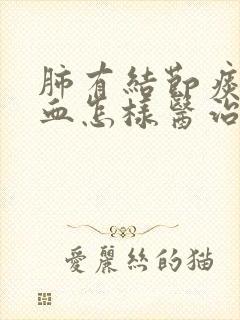 肺有結節痰
血怎樣醫治
愛麗絲的猫